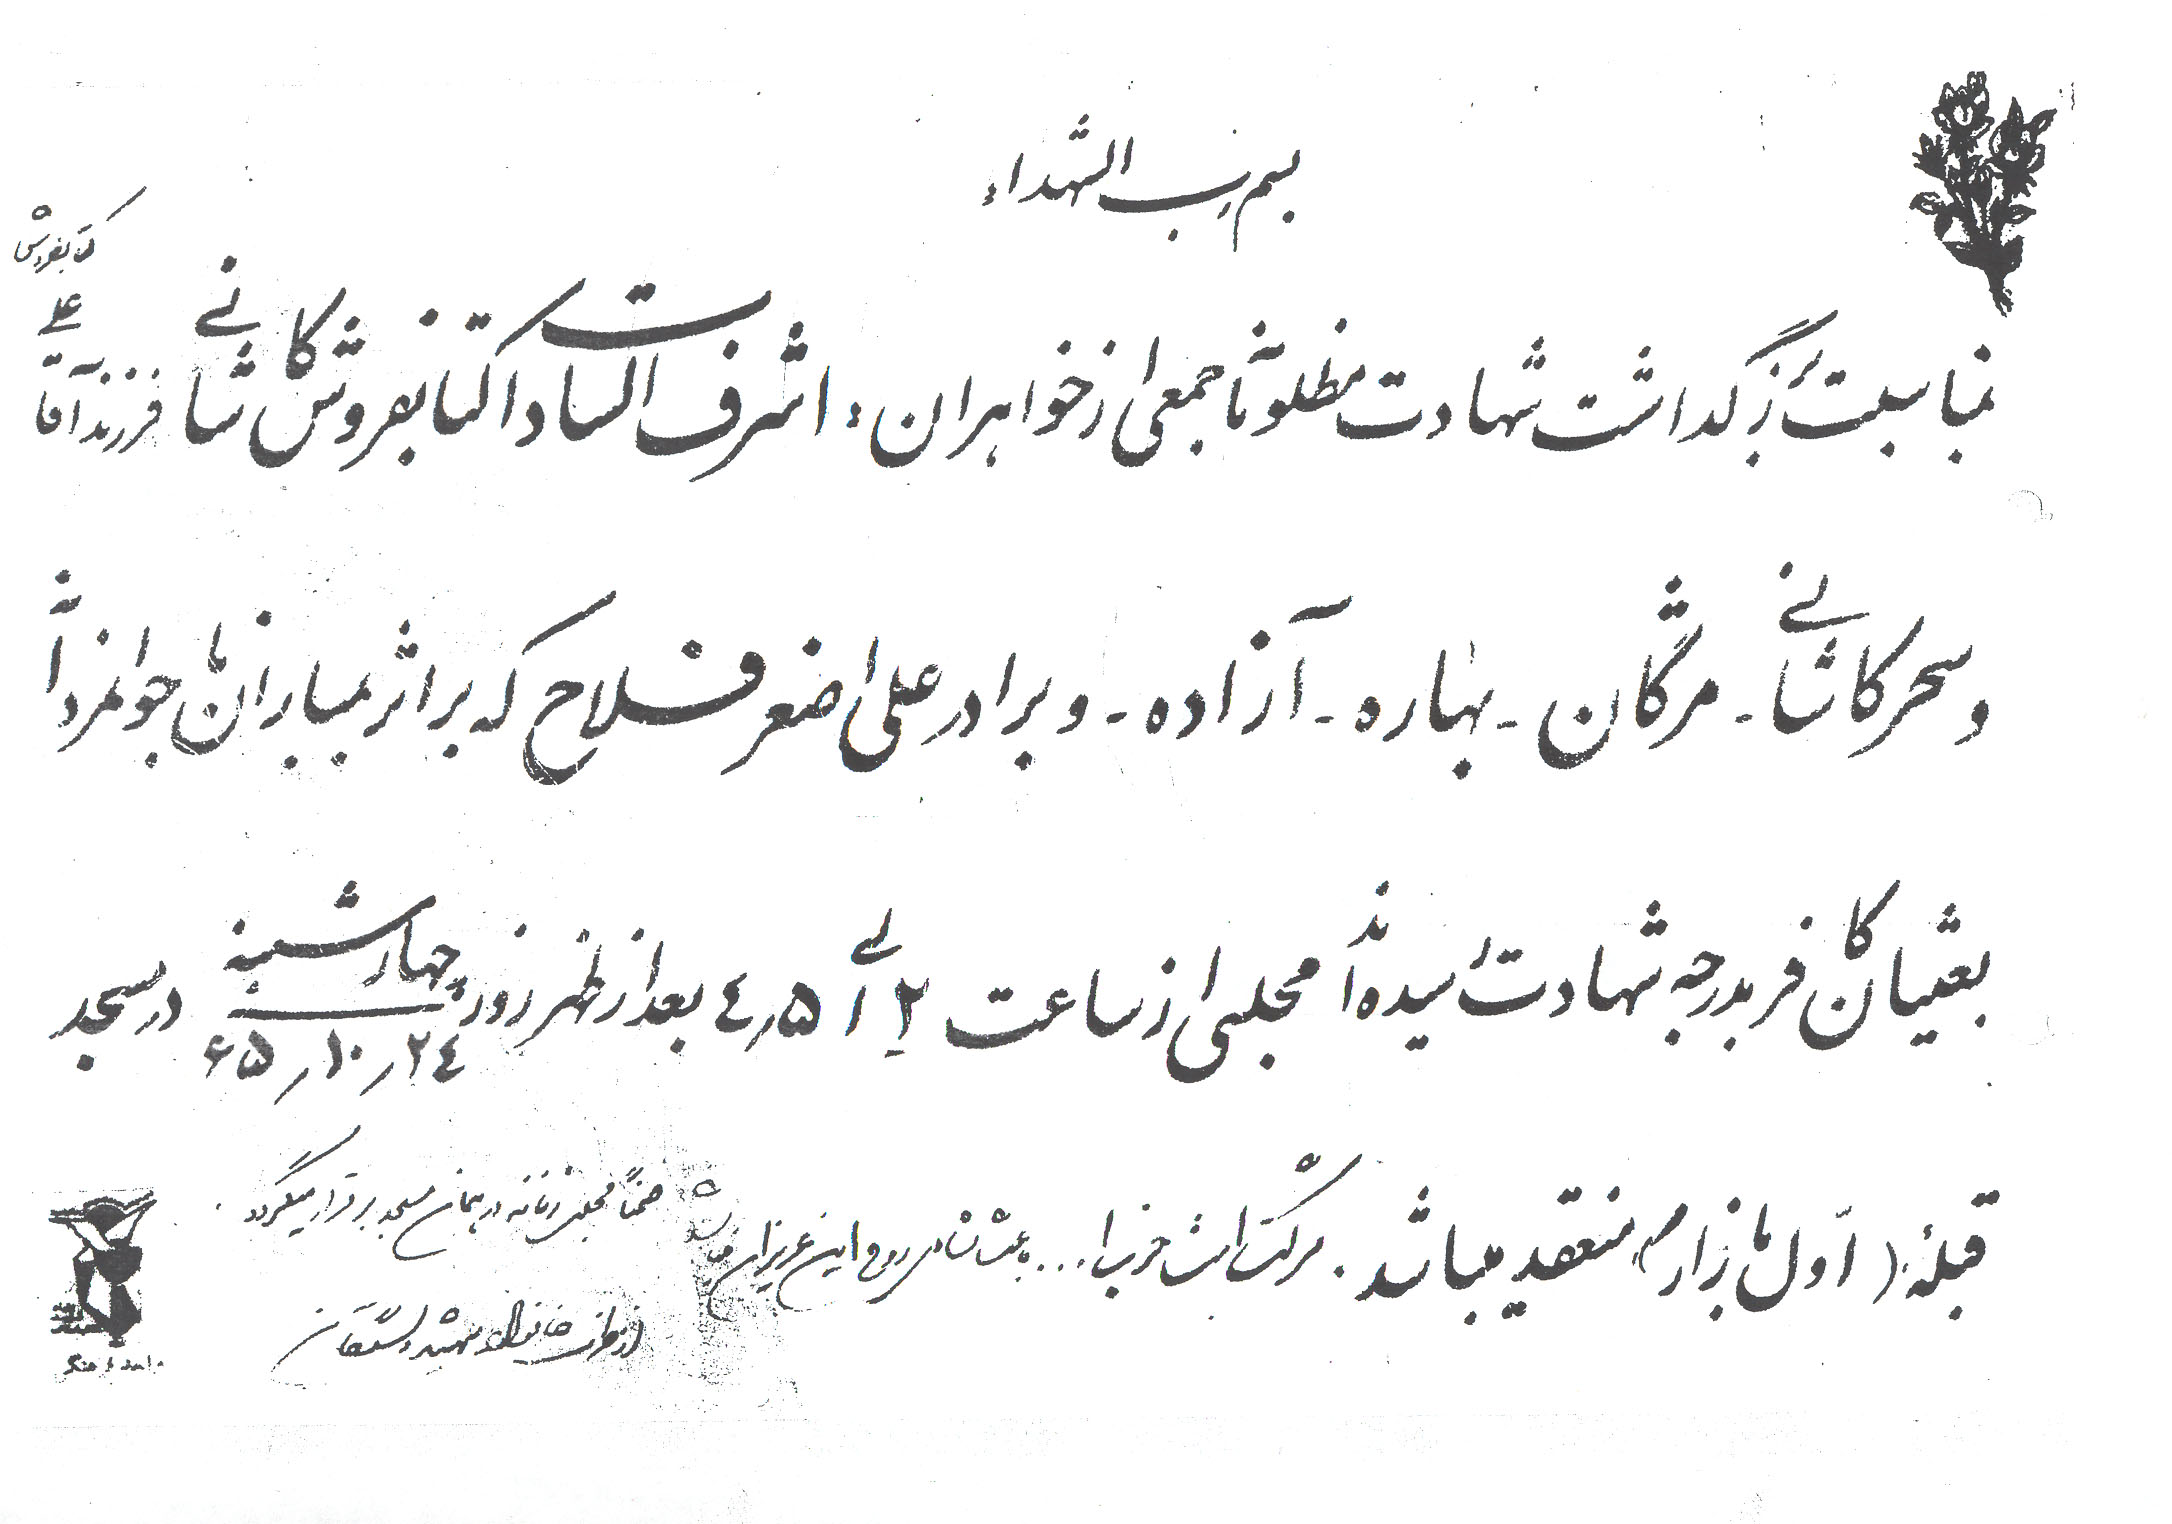 بسم رب الشهداء
بمناسبت بزرگداشت شهادت مظلومانه جمعی از خواهران: اشرف السادات کتابفروش کاشانی فرزند آقای علی کتابفروش
و سحر کاشانی - مژگان - بهاره - آزاده - و برادر علی اصغر فلاح که بر اثر بمباران ناجوانمردانه
بعثیان کافر بدرجه شهادت رسیده‌اند مجلسی از ساعت ۲ الی ۴٫۵ بعد از ظهر روز چهارشنبه ۶۵/۱۰/۲۴ در مسجد
قبله (اول بازارم) منعقد میباشد. شرکت امت حزب ا... باعث شادی روح این عزیزان میباشد
ضمناً مجلس زنانه در همان مسجد برقرار میگردد.
از طرف خانواده شهید و
واحد فرهنگی